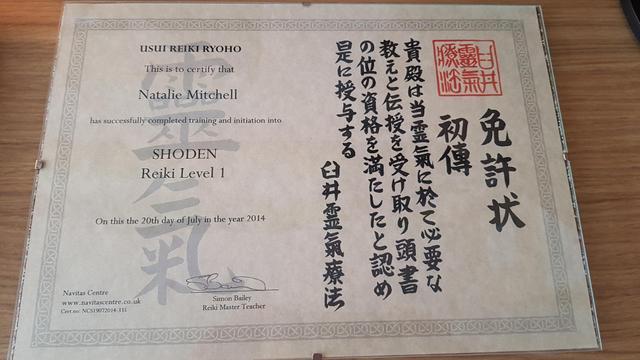 USUI REIKI RYOHO
This is to certify that
Natalie Mitchell
has successfully completed training and initiation into
SHODEN
Reiki Level 1
On this the 20th day of July in the year 2014
Navitas Centre
www.navitascentre.co.uk
Cert no: NCS19072014-111
Simon Bailey
Reiki Master Teacher
靈氣
臼井
靈氣
療法
免許状
初傳
貴殿は当霊氣に於て必要な
教えと伝授を受け取り頭書
の位の資格を満たしたと認め
是に授与する
臼井靈氣療法